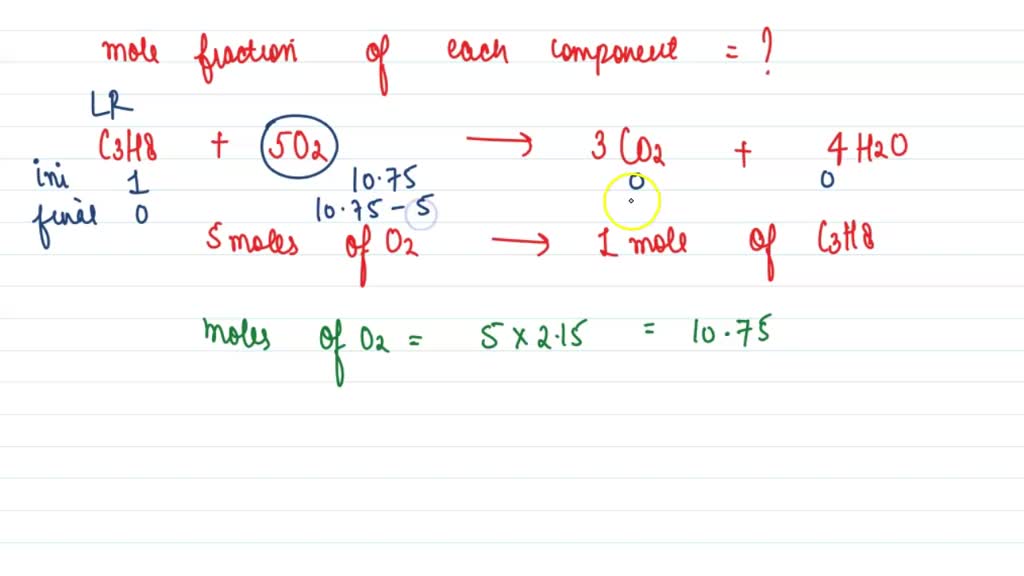 mole fraction of each component = ?
LR
C3H8 + 5O2 → 3CO2 + 4H2O
ini 1 10.75 0 0
final 0 10.75 - 5
5 moles of O2 → 1 mole of C3H8
moles of O2 = 5 x 2.15 = 10.75